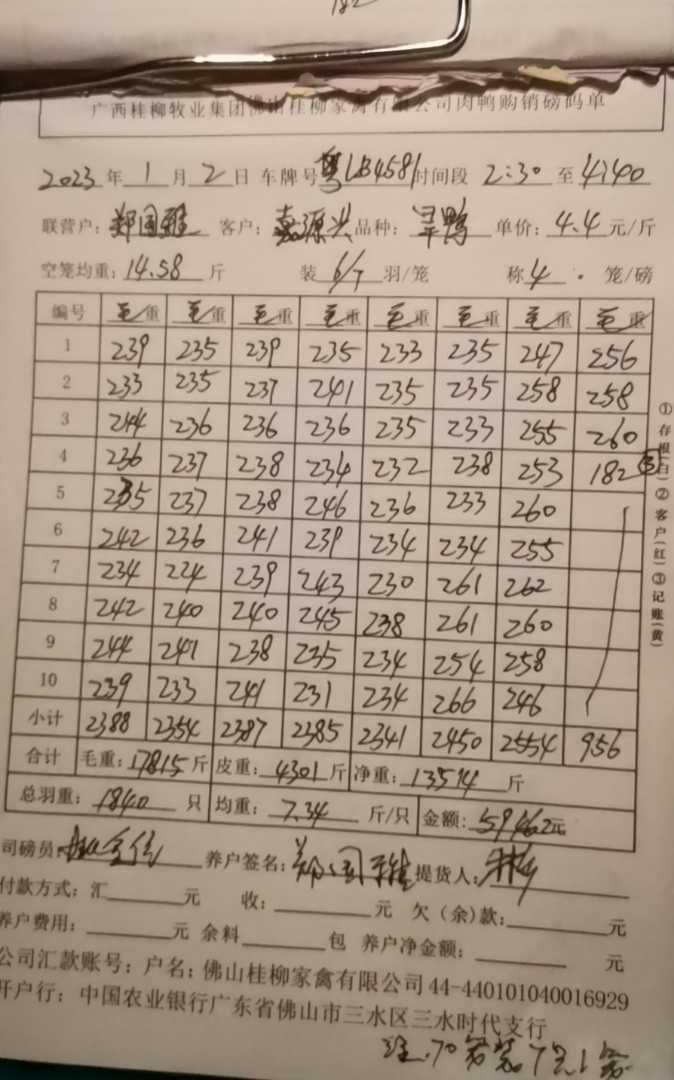 182
广西桂柳牧业集团佛山桂柳家禽有限公司肉鸭购销磅码单
2023 年 1 月 2 日 车牌号 粤LB4581 时间段 2:30 至 4:40
联营户: 郑国雅 客户: 嘉源兴 品种: 旱鸭 单价: 4.4 元/斤
空笼均重: 14.58 斤 装 6/7 羽/笼 称 4 笼/磅
编号 毛重 毛重 毛重 毛重 毛重 毛重 毛重 毛重
1 239 235 239 235 233 235 247 256
2 233 235 237 241 235 235 258 258
3 244 236 236 236 235 233 255 260
4 236 237 238 234 232 238 253 182 ③
5 235 237 238 246 236 233 260
6 242 236 241 239 234 234 255
7 234 224 239 243 230 261 262
8 242 240 240 245 238 261 260
9 244 241 238 235 234 254 258
10 239 233 241 231 234 266 246
小计 2388 2354 2387 2385 2341 2450 2554 956
合计 毛重: 17815 斤 皮重: 4301 斤 净重: 13514 斤
总羽重: 1840 只 均重: 7.34 斤/只 金额: 59462元
司磅员: 养户签名: 郑国雅 提货人:
付款方式: 汇 元 收: 元 欠(余)款: 元
养户费用: 元 余料 包 养户净金额: 元
公司汇款账号: 户名: 佛山桂柳家禽有限公司 44-440101040016929
开户行: 中国农业银行广东省佛山市三水区三水时代支行
注.70笼装7只1笼
①存根(白)②客户(红)③记账(黄)